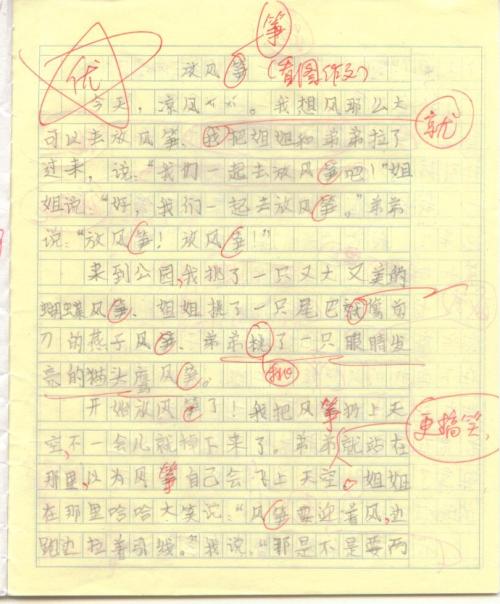 筝
优
放风筝(看图作文)
今天,凉风习习。我想风那么大
就
可以去放风筝、我把姐姐和弟弟拉了
过来,说:“我们一起去放风筝吧!”姐
姐说:“好,我们一起去放风筝。”弟弟
说:“放风筝!放风筝!”
来到公园,我挑了一只又大又美的
蝴蝶风筝、姐姐挑了一只尾巴就像剪
刀的燕子风筝、弟弟挑了一只眼睛发
亮的猫头鹰风筝。
挑
开始放风筝了!我把风筝扔上天
空,不一会儿就掉下来了。弟弟就站在
更搞笑,
那里,以为风筝自己会飞上天空。姐姐
在那里哈哈大笑说:“风筝要迎着风,边
跑边拉着引线。”我说:“那是不是要两